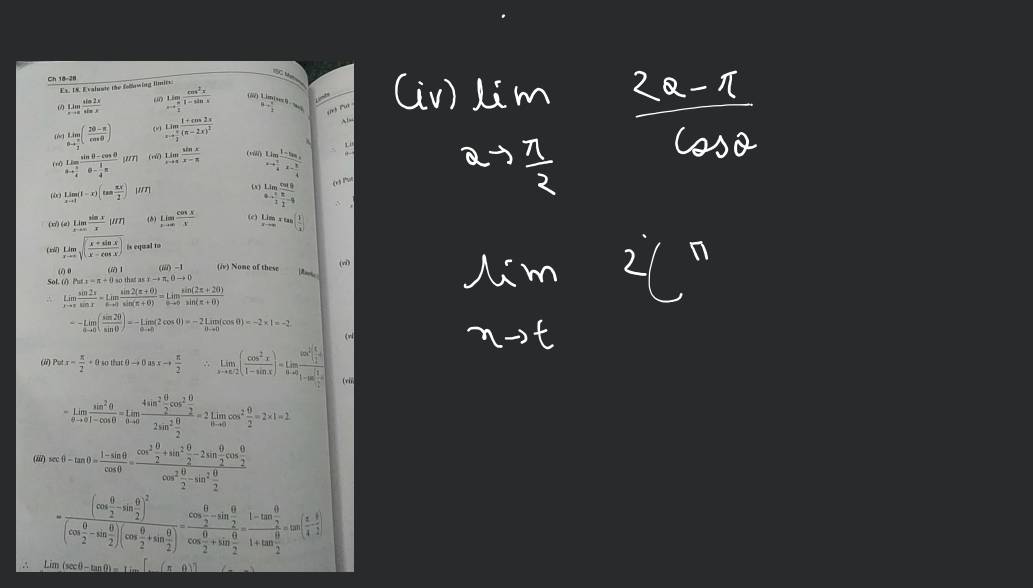 Ch 18-28
ISC Mathem
Ex. 18. Evaluate the following limits:
(i) Lim x→π sin 2x / sin x
(ii) Lim x→π/2 cos² x / 1 − sin x
(iii) Lim θ→π/2 (sec θ − tan θ)
(iv) Lim θ→π/2 (2θ − π / cos θ)
(v) Lim x→π/2 1 + cos 2x / (π − 2x)²
(vi) Lim θ→π/4 sin θ − cos θ / θ − 1/4 π |IIT|
(vii) Lim x→π sin x / x − π
(viii) Lim x→π/4 1 − tan x / x − π/4
(ix) Lim x→1 (1 − x) (tan πx/2) |IIT|
(x) Lim θ→π/2 cot θ / π/2 − θ
(xi) (a) Lim x→∞ sin x / x |IIT|
(b) Lim x→∞ cos x / x
(c) Lim x→∞ x tan (1/x)
(xii) Lim x→∞ √(x + sin x / x − cos x) is equal to
(i) 0 (ii) 1 (iii) −1 (iv) None of these
Sol. (i) Put x = π + θ so that as x → π, θ → 0
∴ Lim x→π sin 2x / sin x = Lim θ→0 sin 2(π + θ) / sin(π + θ) = Lim θ→0 sin(2π + 2θ) / sin(π + θ)
= −Lim θ→0 (sin 2θ / sin θ) = −Lim θ→0 (2 cos θ) = −2 Lim θ→0 (cos θ) = −2 × 1 = −2.
(ii) Put x = π/2 + θ so that θ → 0 as x → π/2 ∴ Lim x→π/2 (cos² x / 1 − sin x) = Lim θ→0
= Lim θ→0 sin² θ / 1 − cos θ = Lim θ→0 4 sin² θ/2 cos² θ/2 / 2 sin² θ/2 = 2 Lim θ→0 cos² θ/2 = 2 × 1 = 2.
(iii) sec θ − tan θ = 1 − sin θ / cos θ = cos² θ/2 + sin² θ/2 − 2 sin θ/2 cos θ/2 / cos² θ/2 − sin² θ/2
= (cos θ/2 − sin θ/2)² / (cos θ/2 − sin θ/2)(cos θ/2 + sin θ/2) = cos θ/2 − sin θ/2 / cos θ/2 + sin θ/2 = 1 − tan θ/2 / 1 + tan θ/2 = tan (π/4 − θ/2)
∴ Lim (sec θ − tan θ) = Lim
Limits
(iv) Put
(v) Put
(vi)
(iv) lim 2θ − π / cos θ
θ → π/2
lim 2(π
n → t